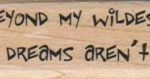 EYOND MY WILDES
DREAMS AREN't